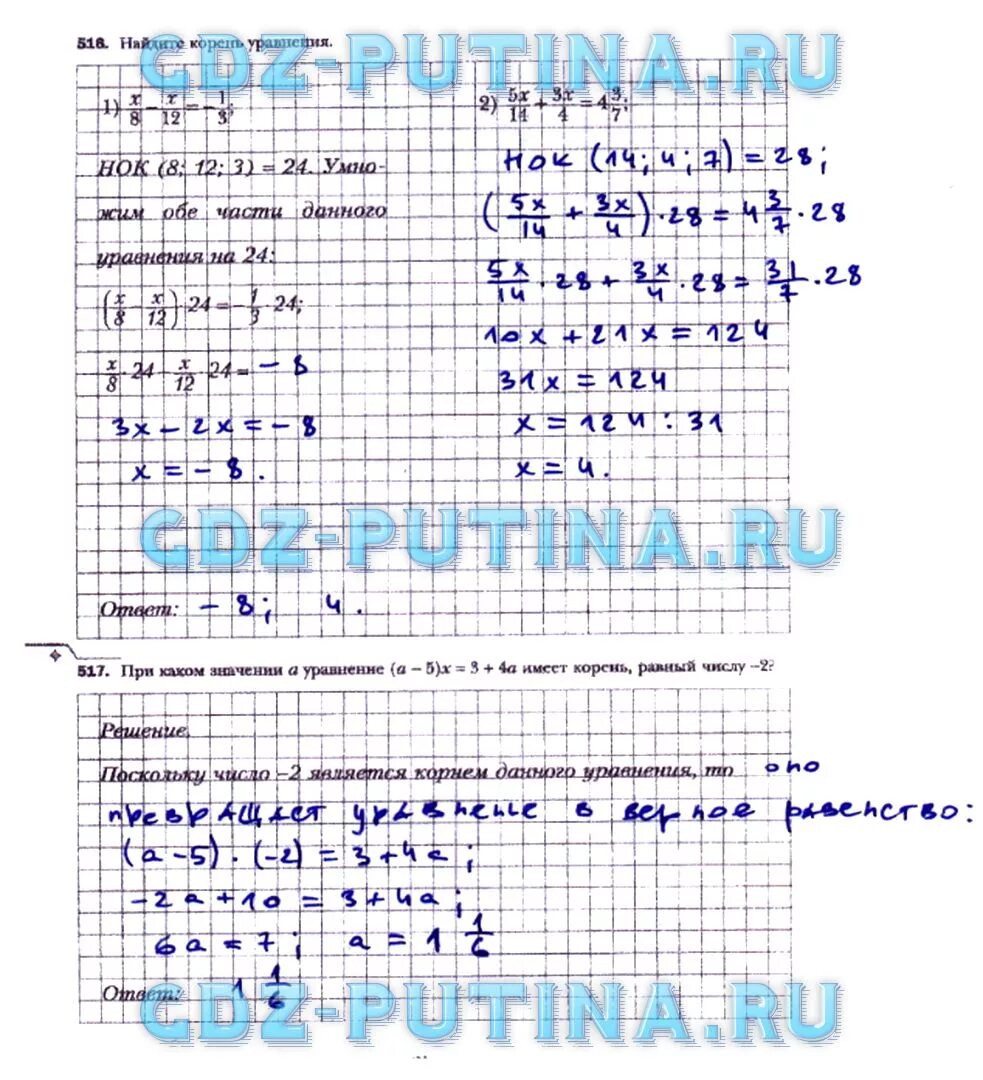 GDZ-PUTINA.RU
516. Найдите корень уравнения.
1) x/8 − x/12 = −1/3;
НОК (8; 12; 3) = 24. Умно-
жим обе части данного
уравнения на 24:
(x/8 − x/12) · 24 = −1/3 · 24;
x/8 · 24 − x/12 · 24 = − 8
3x − 2x = − 8
x = − 8.
2) 5x/14 + 3x/4 = 4 3/7;
НОК (14; 4; 7) = 28;
(5x/14 + 3x/4) · 28 = 4 3/7 · 28
5x/14 · 28 + 3x/4 · 28 = 31/7 · 28
10x + 21x = 124
31x = 124
x = 124 : 31
x = 4.
GDZ-PUTINA.RU
Ответ: − 8; 4.
517. При каком значении a уравнение (a − 5)x = 3 + 4a имеет корень, равный числу −2?
Решение.
Поскольку число −2 является корнем данного уравнения, то оно
превращает уравнение в верное равенство:
(a − 5) · (−2) = 3 + 4a;
−2a + 10 = 3 + 4a;
6a = 7; a = 1 1/6
Ответ: 1 1/6
GDZ-PUTINA.RU